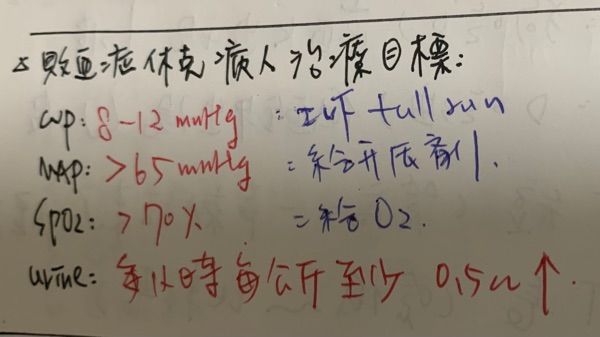 敗血症休克病人治療目標:
CVP: 8-12 mmHg : IVF full run
MAP: >65 mmHg = 給升壓劑.
SpO2: >70% = 給O2.
urine: 每小時每公斤至少 0.5cc↑.